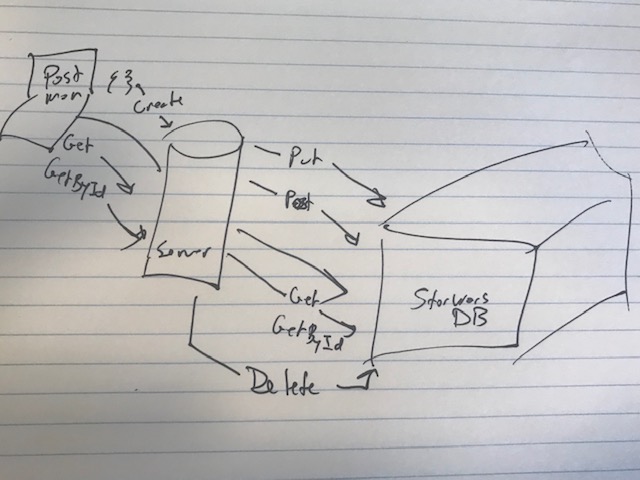 Post
man
{ },
Create
Get
GetById
Server
Put
Post
Get
GetById
Delete
StarWars
DB